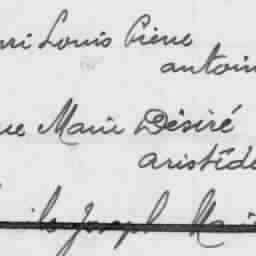 ri Louis Pierre
antoin
ue Marie Désiré
aristide
Joseph